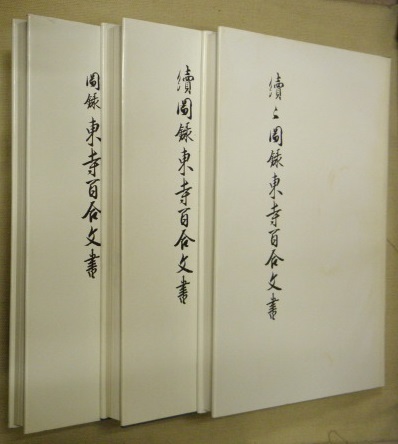 圖錄東寺百合文書
續圖錄東寺百合文書
續々圖錄東寺百合文書